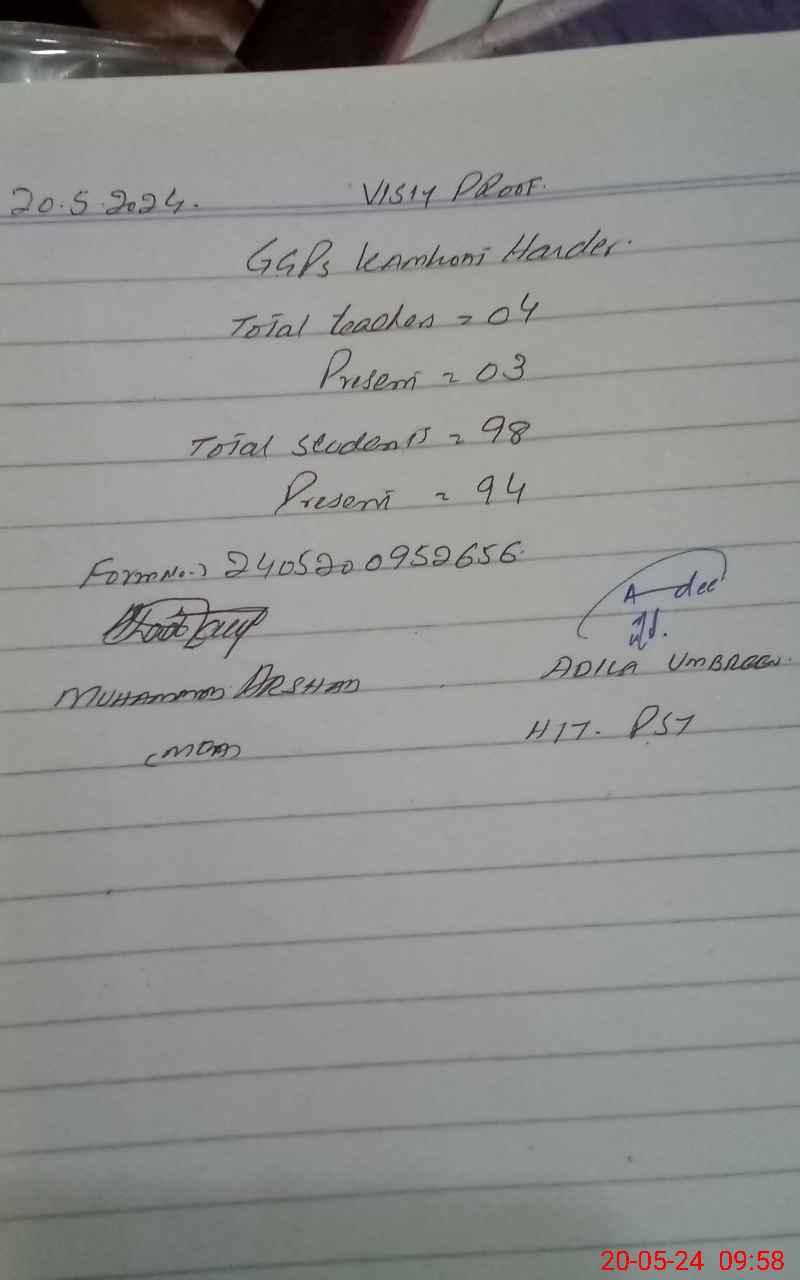 20.5.2024. VISIT PROOF.
GGPS Kamhoni Harder.
Total teacher = 04
Present = 03
Total students = 98
Present = 94
Form No.) 2405200952656.
A dee
MUHAMMAD ARSHAD ADILA UMBREEN.
(MEA) H/T. PST
20-05-24 09:58